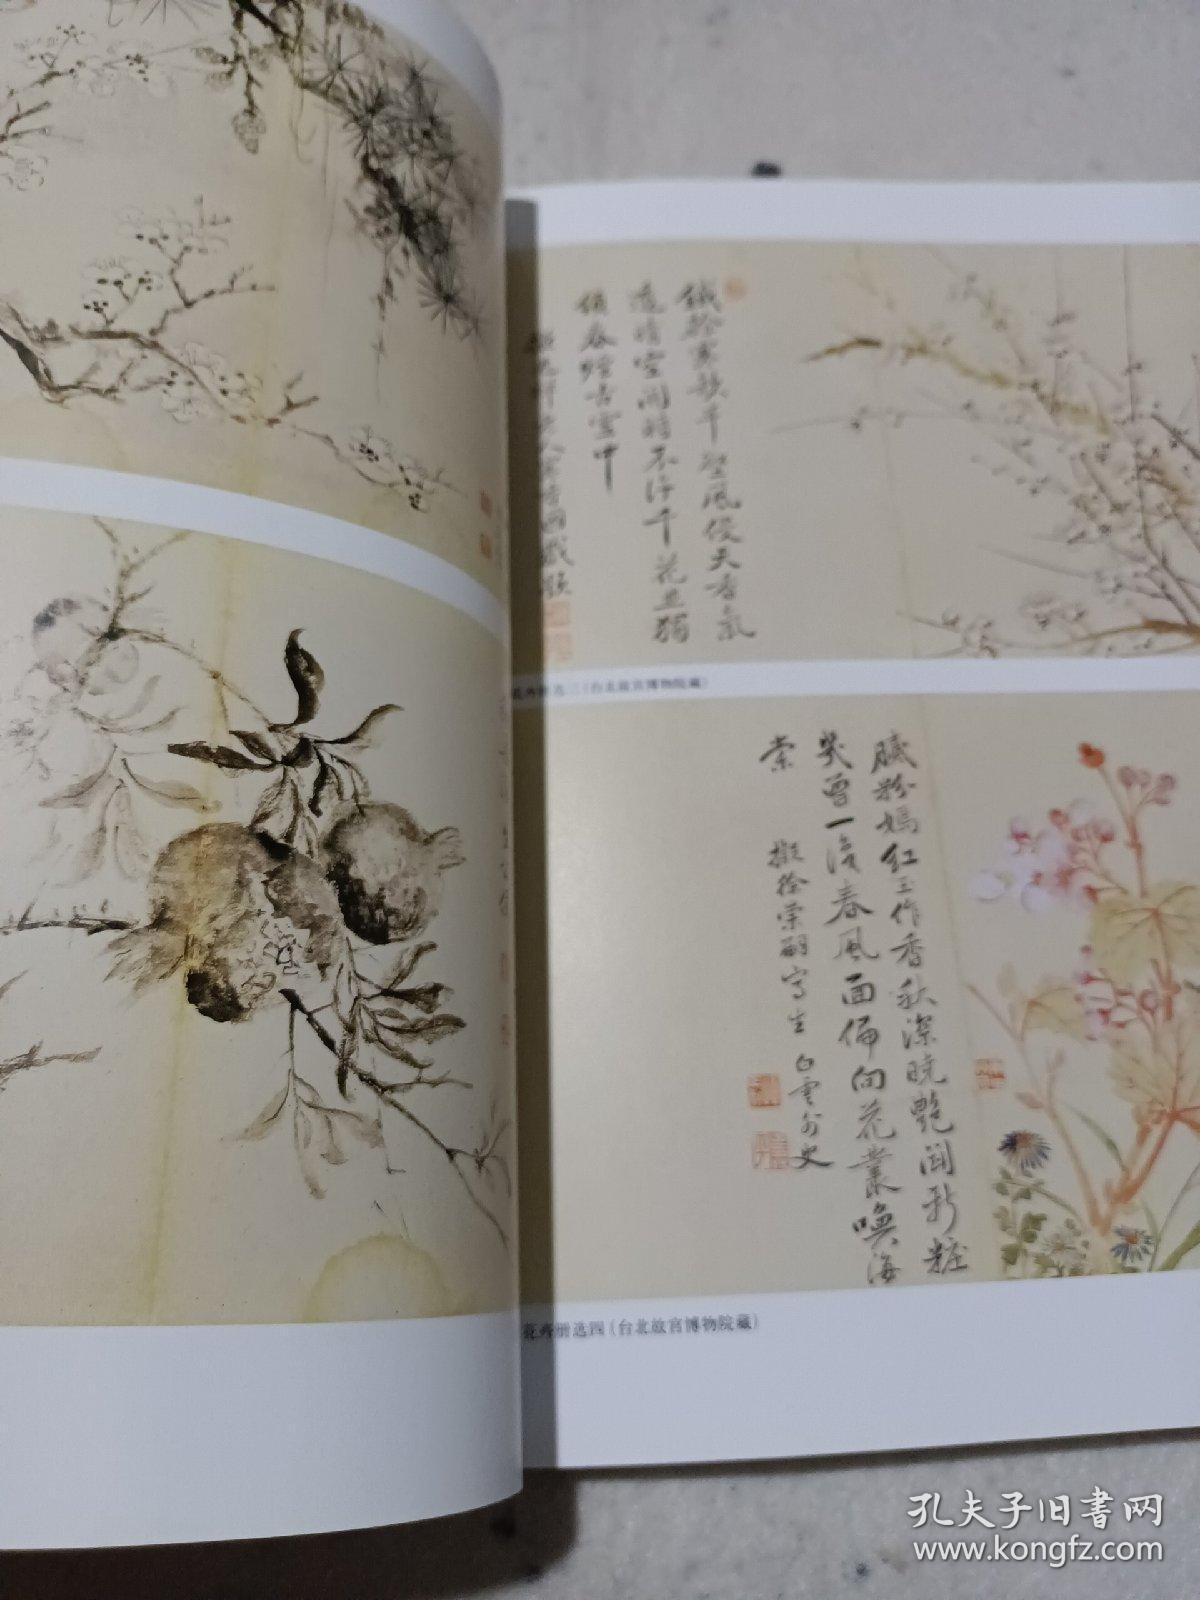 鐵幹寒敧千壑風俊天香氣
遠晴空開時不許千花並獨
領春踪古雪中
花卉册选三（台北故宫博物院藏）
腻粉嫣红玉作香秋深晓艳闘新粧
笑曾一識春風面偏向花叢喚海
棠
擬徐崇嗣寫生 白雲外史
花卉册选四（台北故宫博物院藏）
孔夫子旧书网
www.kongfz.com